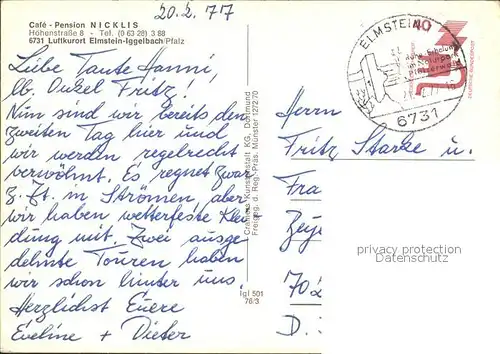 20.2.77
Café - Pension NICKLIS
Höhenstraße 8 - Tel. (0 63 28) 3 88
6731 Luftkurort Elmstein-Iggelbach/Pfalz
Liebe Tante Hanni,
lb. Onkel Fritz!
Nun sind wir bereits den
zweiten Tag hier und
wir werden regelrecht
verwöhnt. Es regnet zwar
z. Zt. in Strömen, aber
wir haben wetterfeste Klei
dung mit. Zwei ausge
dehnte Touren haben
wir schon hinter uns.
Herzlichst Euere
Eveline + Dieter
Cramers Kunstanstalt KG, Dortmund
Freigeg. d. Reg. Präs. Münster 127270
Igl 501
76/3
ELMSTEIN
Ruhe Erholung
im Naturpark
Pfälzerwald
6731
40
DEUTSCHE BUNDESPOST
Herrn
Fritz Starke u.
Fra
privacy protection
Datenschutz
70
D.